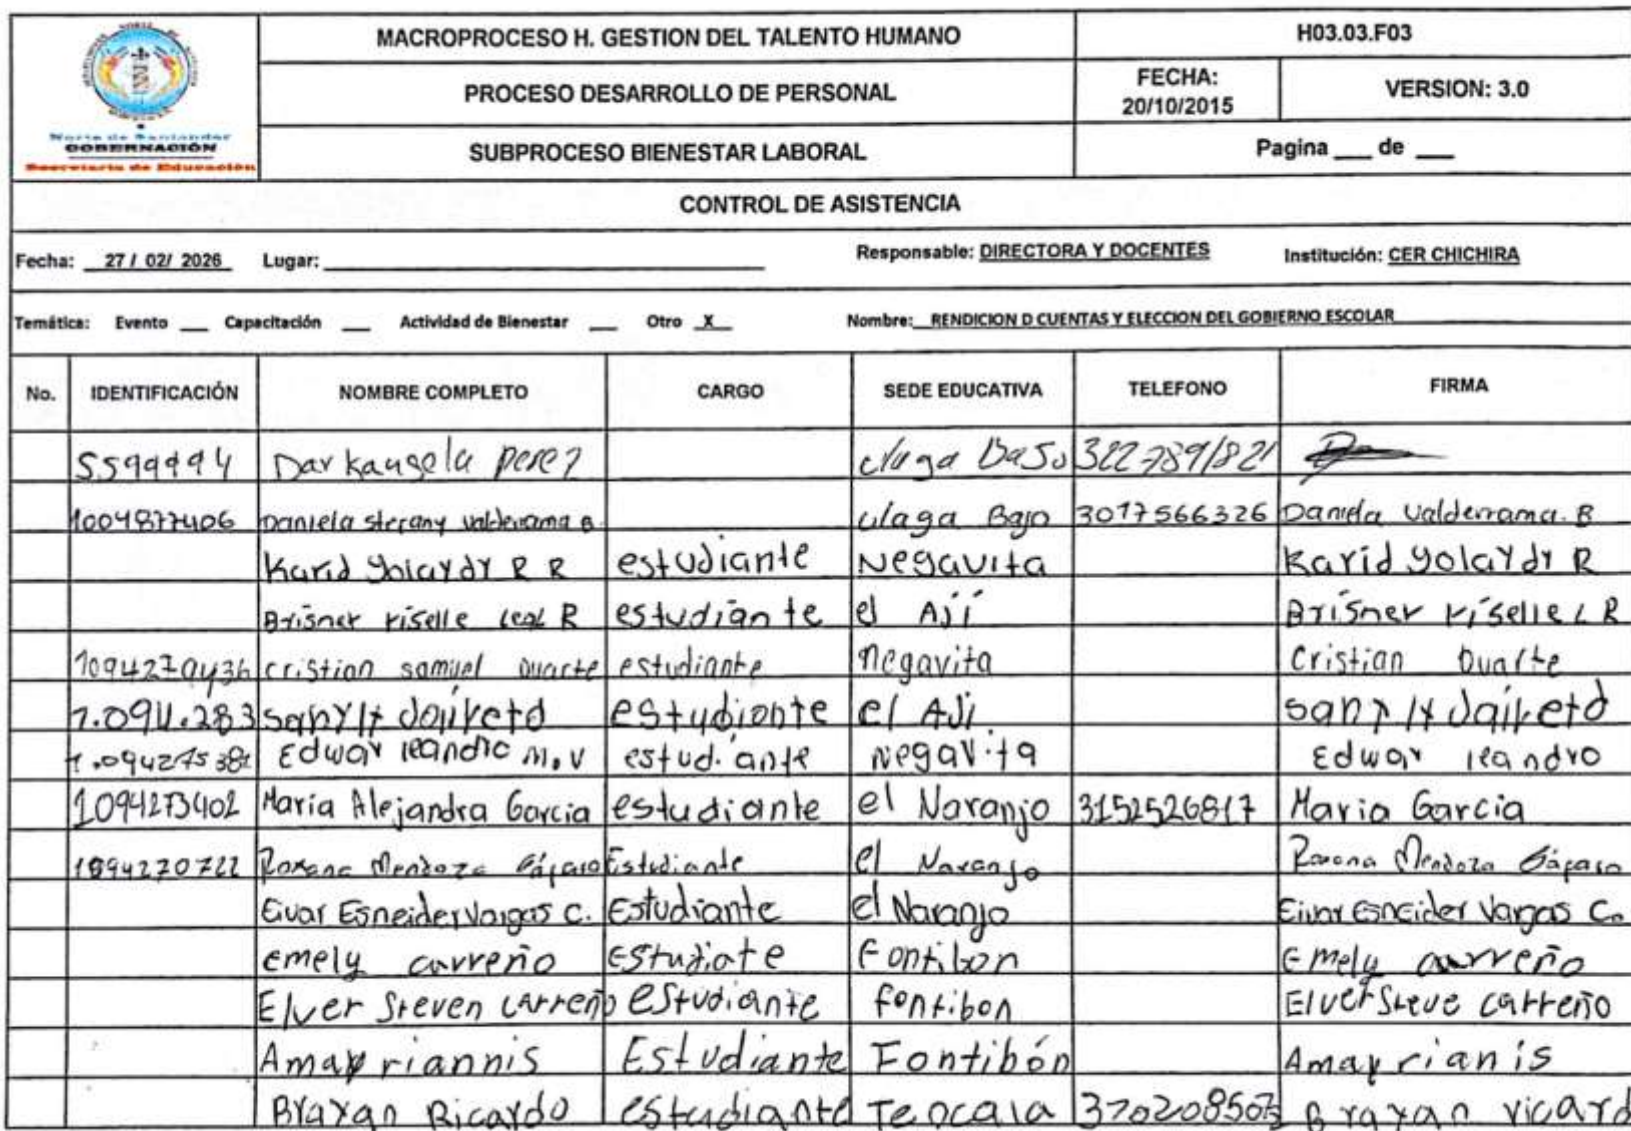 MACROPROCESO H. GESTION DEL TALENTO HUMANO H03.03.F03
PROCESO DESARROLLO DE PERSONAL FECHA: 20/10/2015 VERSION: 3.0
Norte de Santander
GOBERNACIÓN
Secretaria de Educación
SUBPROCESO BIENESTAR LABORAL Pagina ___ de ___
CONTROL DE ASISTENCIA
Fecha: 27 / 02/ 2026 Lugar: ___ Responsable: DIRECTORA Y DOCENTES Institución: CER CHICHIRA
Temática: Evento ___ Capacitación ___ Actividad de Bienestar ___ Otro X Nombre: RENDICION D CUENTAS Y ELECCION DEL GOBIERNO ESCOLAR
No. IDENTIFICACIÓN NOMBRE COMPLETO CARGO SEDE EDUCATIVA TELEFONO FIRMA
Darkangela perez
Daniela stefany valderrama B ulaga Bajo 3017566326 Daniela Valderrama. B
Karid yolaydy R R estudiante Negavita Karid yolaydy R
Brisner riselle leal R estudiante el Ají Brisner riselle L R
cristian samuel Duarte estudiante negavita Cristian Duarte
1.094.283 estudiante el Aji
Edwar leandro M.V estudiante Negavita Edwar leandro
1094273402 Maria Alejandra Garcia estudiante el Naranjo 3152526817 Maria Garcia
1094270722 Roxana Mendoza Estudiante el Naranjo Roxana Mendoza
Eivar Esneider Vargas C. Estudiante el Naranjo Eivar Esneider Vargas C.
emely carreño Estudiate Fontibon Emely carreño
Elver Steven carreño estudiante fontibon Elver Steve carreño
Estudiante Fontibón
Brayan Ricardo estudiante Brayan ricard